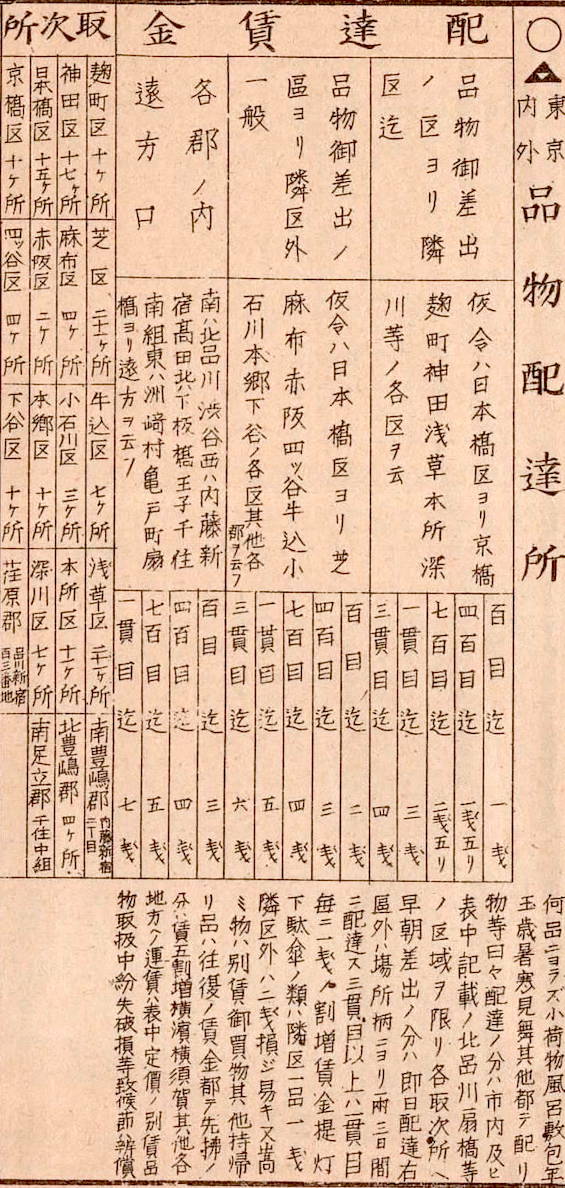 ○
東京
内外
品物配達所
配達賃金
品物御差出
ノ区ヨリ隣
区迄
仮令ハ日本橋区ヨリ京橋
麹町神田浅草本所深
川等ノ各区ヲ云
百目迄 一銭
四百目迄 一銭五リ
七百目迄 二銭五リ
一貫目迄 三銭
三貫目迄 四銭
品物御差出ノ
區ヨリ隣区外
一般
仮令ハ日本橋区ヨリ芝
麻布赤阪四ッ谷牛込小
石川本郷下谷ノ各区其他各
郡ヲ云フ
百目迄 二銭
四百目迄 三銭
七百目迄 四銭
一貫目迄 五銭
三貫目迄 六銭
各郡ノ内
遠方口
南ハ北品川渋谷西ハ内藤新
宿高田北ハ下板橋王子千住
南組東ハ洲崎村亀戸町扇
橋ヨリ遠方ヲ云フ
百目迄 三銭
四百目迄 四銭
七百目迄 五銭
一貫目迄 七銭
取次所
麹町区 十ヶ所
芝区 二十一ヶ所
牛込区 七ヶ所
浅草区 二十一ヶ所
南豊嶋郡 内藤新宿
二丁目
神田区 十七ヶ所
麻布区 四ヶ所
小石川区 三ヶ所
本所区 十一ヶ所
北豊嶋郡 四ヶ所
日本橋区 十五ヶ所
赤阪区 二ヶ所
本郷区 十ヶ所
深川区 七ヶ所
南足立郡 千住中組
京橋区 十ヶ所
四ッ谷区 四ヶ所
下谷区 十ヶ所
荏原郡 品川新宿
百三番地
何品ニヨラズ小荷物風呂敷包年
玉歳暑寒見舞其他都テ配リ
物等曰々配達ノ分ハ市内及ヒ
表中記載ノ北品川扇橋等
ノ区域ヲ限リ各取次所ヘ
早朝差出ノ分ハ即日配達右
區外ハ場所柄ニヨリ両三日間
ニ配達ス三貫目以上ハ一貫目
毎ニ一銭ノ割増賃金提灯
下駄傘ノ類ハ隣区一品一銭
隣区外ハ二銭損ジ易キ又嵩
ミ物ハ別賃御買物其他持帰
リ品ハ往復ノ賃金都テ先拂ノ
分ハ賃五割増横濱横須賀其他各
地方ヘノ運賃ハ表中定價ノ別賃品
物取扱中紛失破損等致候節辨償